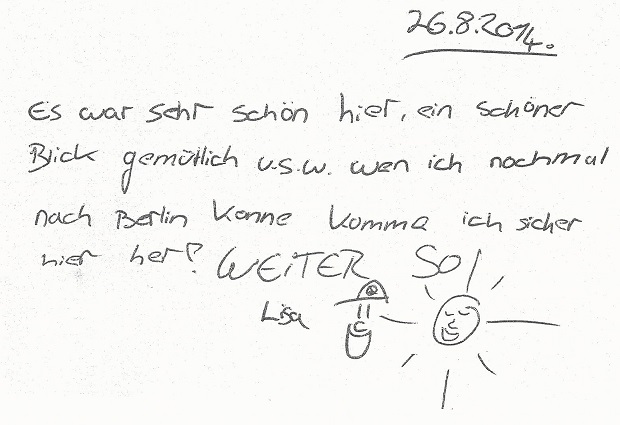 26.8.2014.
Es war sehr schön hier, ein schöner
Blick gemütlich u.s.w. wen ich nochmal
nach Berlin konne komma ich sicher
hier her? WEITER SO!
Lisa